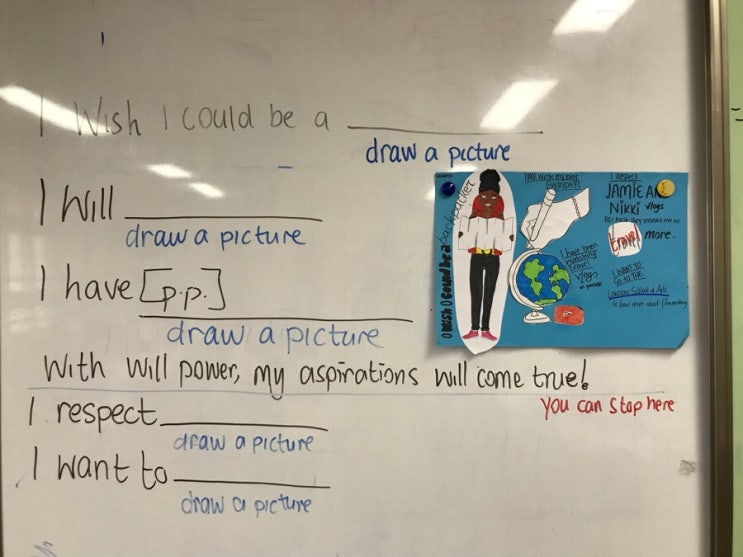 I Wish I could be a
draw a picture
I will
draw a picture
I have [p.p.]
draw a picture
With will power, my aspirations will come true!
you can stop here
I respect
draw a picture
I want to
draw a picture
I wish I could be a backpacker
I will write my blog
EVERYDAY!
I RESPECT
JAMIE AND
NIKKI vlogs
BECAUSE they inspire me to
travel more.
I have been
watching
travel
vlogs
I WANT TO
GO TO THE
London School of Arts
to learn more about filmmaking